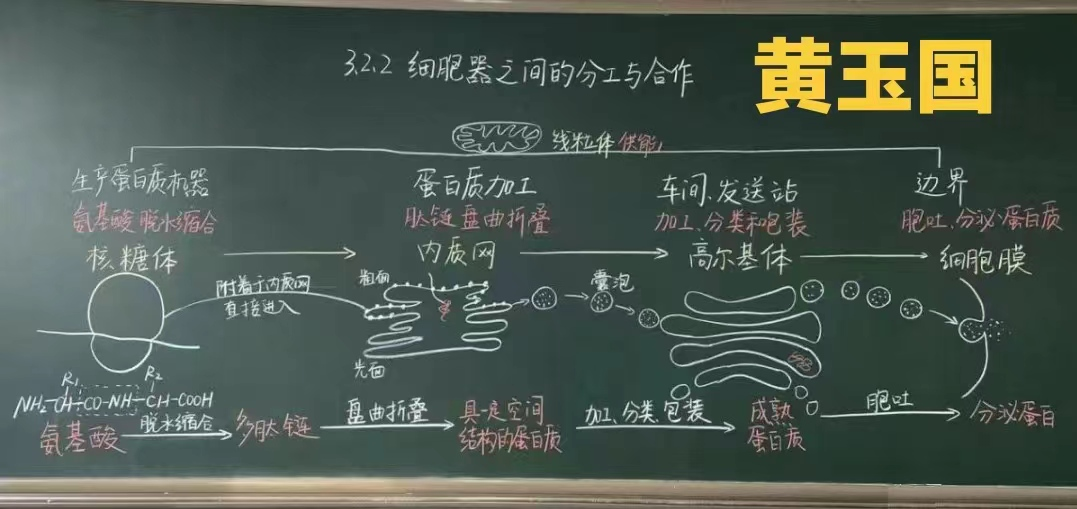 黄玉国
3.2.2 细胞器之间的分工与合作
线粒体 供能
生产蛋白质机器
氨基酸脱水缩合
核糖体
蛋白质加工
肽链盘曲折叠
内质网
车间、发送站
加工、分类和包装
高尔基体
边界
胞吐、分泌蛋白质
细胞膜
附着于内质网
直接进入
粗面
光面
囊泡
R₁ R₂
NH₂-CH-CO-NH-CH-COOH
氨基酸
脱水缩合
多肽链
盘曲折叠
具一定空间
结构的蛋白质
加工、分类、包装
成熟
蛋白质
胞吐
分泌蛋白